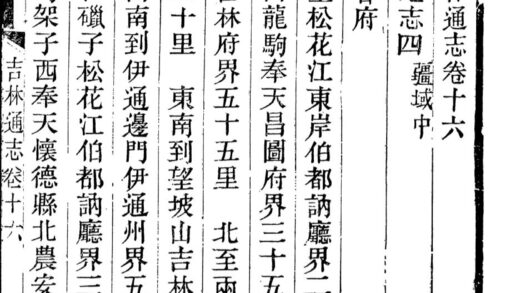 通志卷十六
志四 疆域中
府
松花江東岸伯都訥廳界
龍駒奉天昌圖府界三十五
林府界五十五里 北至兩
十里 東南到望坡山吉林
南到伊通邊門伊通州界五
子松花江伯都訥廳界三
架子西奉天懷德縣北農安
吉林通志卷十六